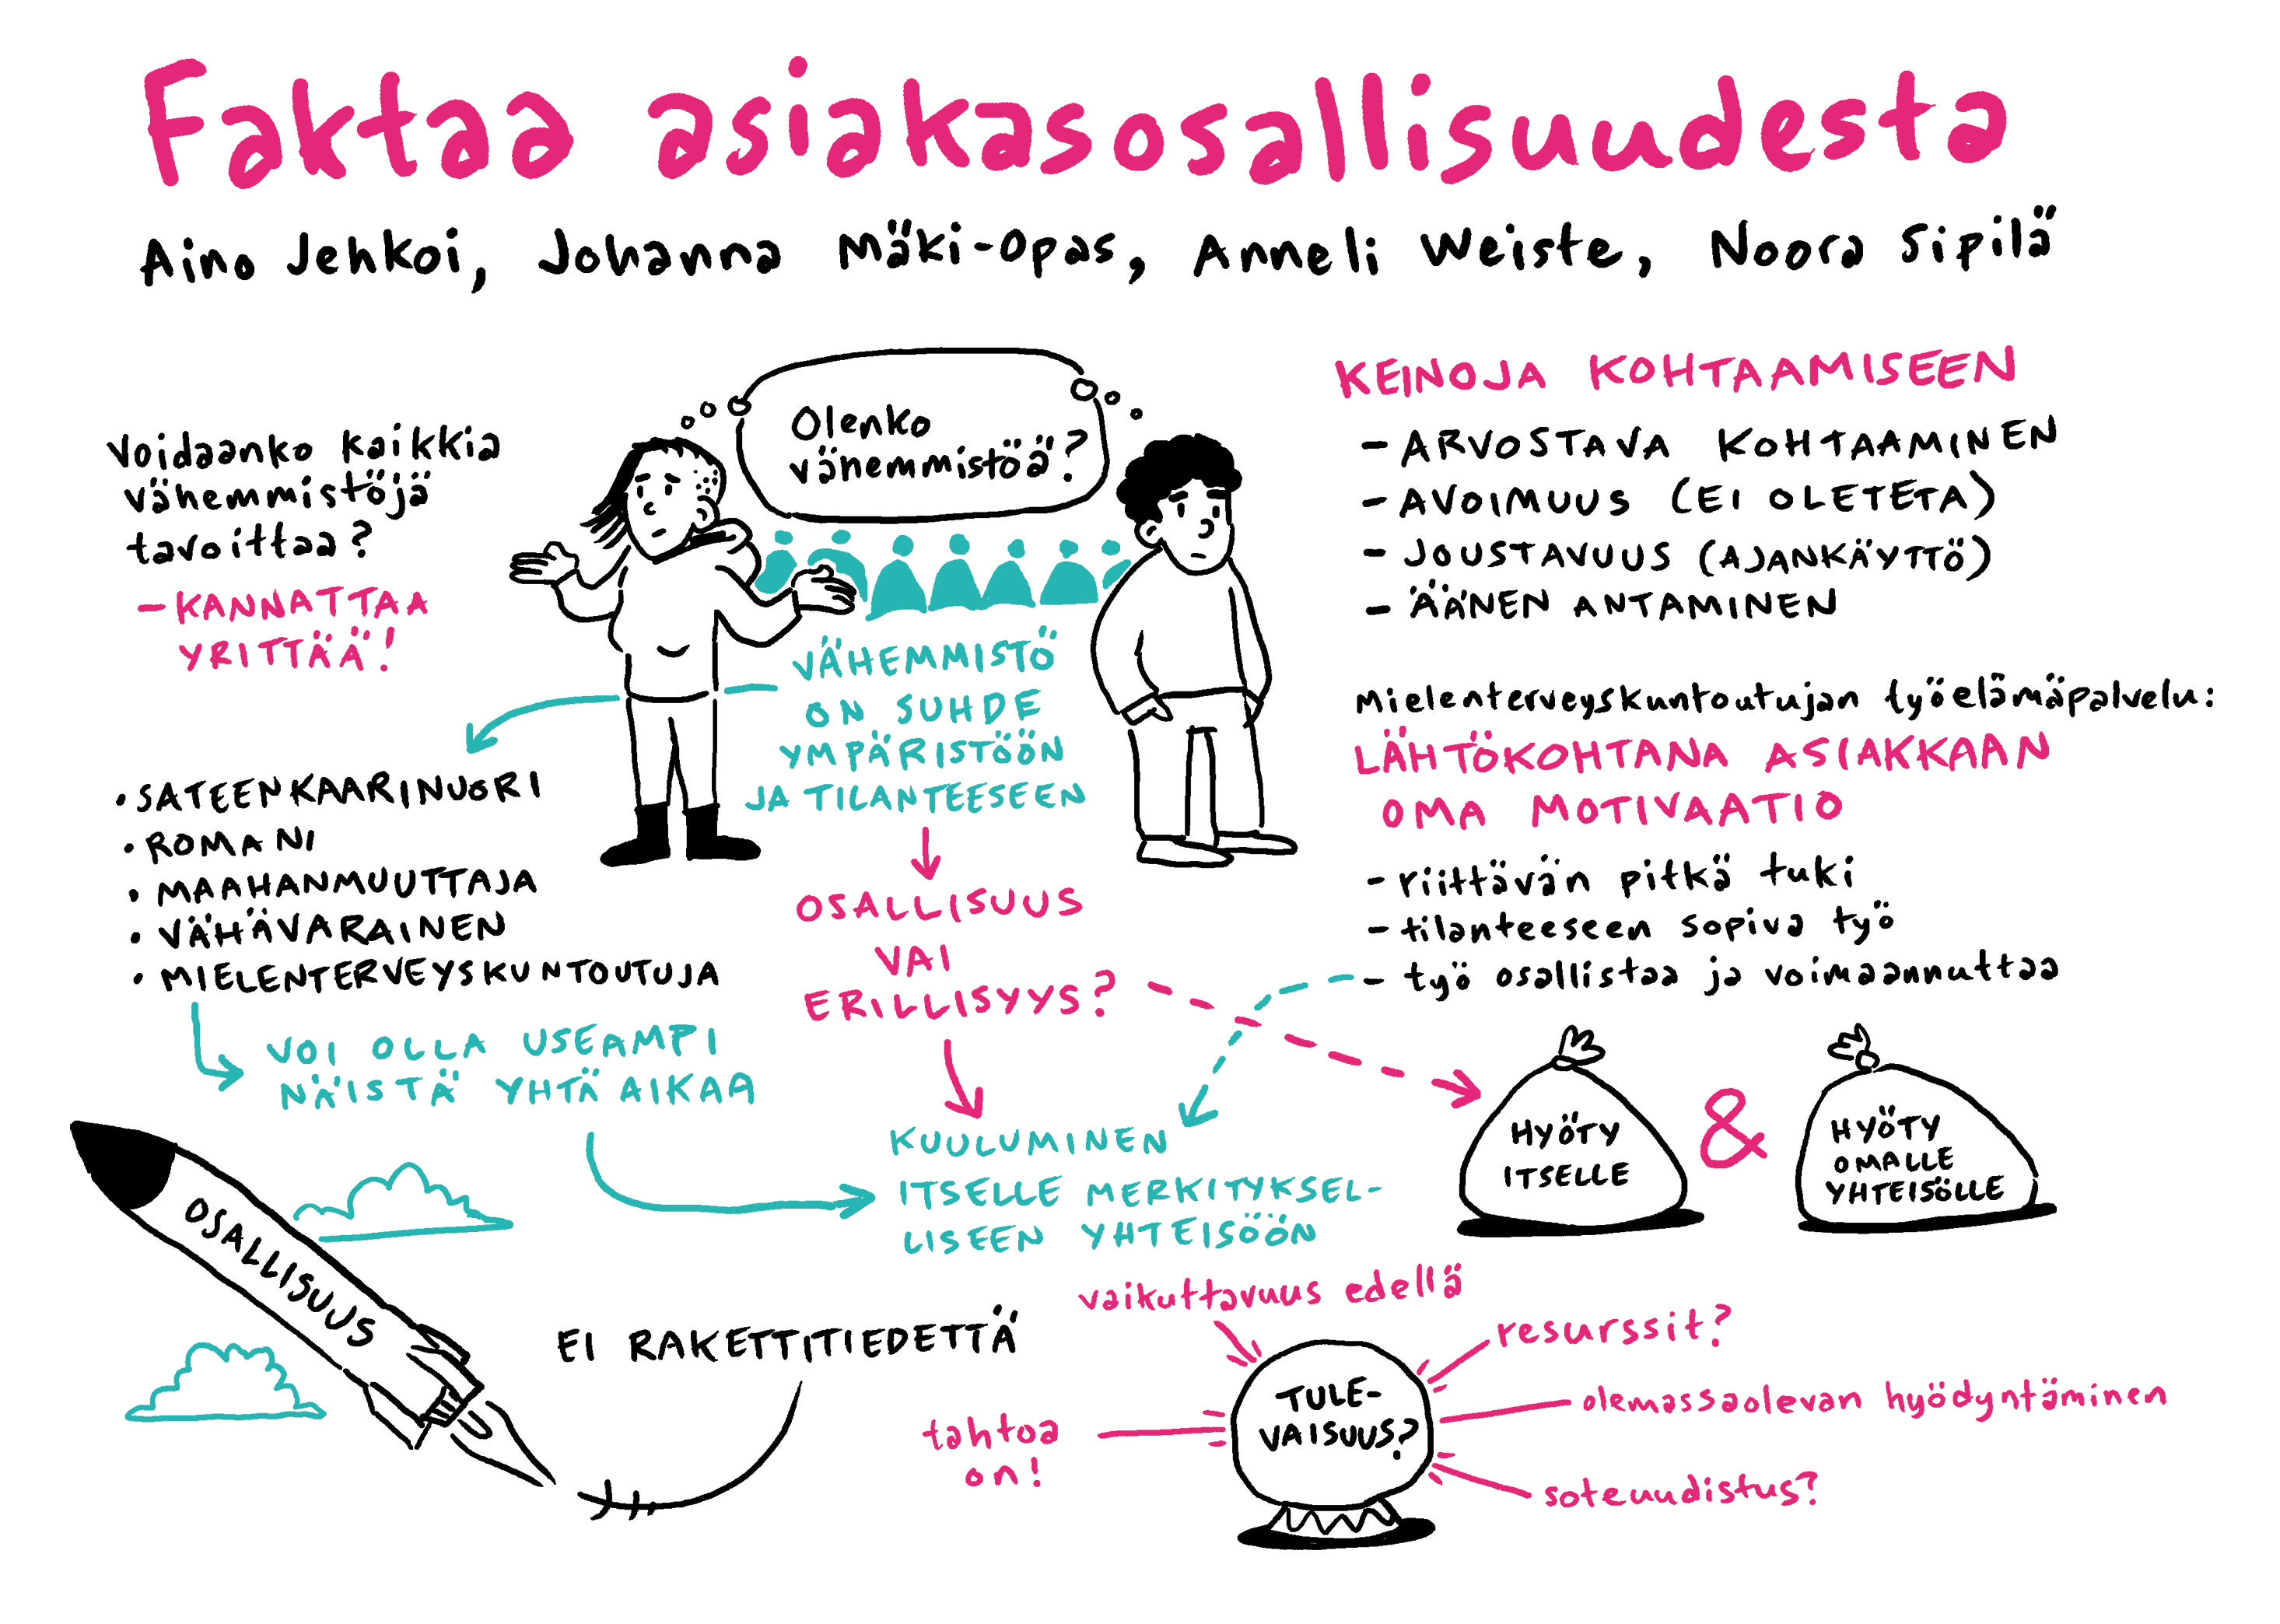 Faktaa asiakasosallisuudesta
Aino Jehkoi, Johanna Mäki-Opas, Anneli Weiste, Noora Sipilä
Voidaanko kaikkia
vähemmistöjä
tavoittaa?
- KANNATTAA
YRITTÄÄ!
Olenko
vähemmistöä?
VÄHEMMISTÖ
ON SUHDE
YMPÄRISTÖÖN
JA TILANTEESEEN
• SATEENKAARINUORI
• ROMANI
• MAAHANMUUTTAJA
• VÄHÄVARAINEN
• MIELENTERVEYSKUNTOUTUJA
VOI OLLA USEAMPI
NÄISTÄ YHTÄ AIKAA
OSALLISUUS
VAI
ERILLISYYS?
KUULUMINEN
ITSELLE MERKITYKSEL-
LISEEN YHTEISÖÖN
KEINOJA KOHTAAMISEEN
- ARVOSTAVA KOHTAAMINEN
- AVOIMUUS (EI OLETETA)
- JOUSTAVUUS (AJANKÄYTTÖ)
- ÄÄNEN ANTAMINEN
Mielenterveyskuntoutujan työelämäpalvelu:
LÄHTÖKOHTANA ASIAKKAAN
OMA MOTIVAATIO
- riittävän pitkä tuki
- tilanteeseen sopiva työ
- työ osallistaa ja voimaannuttaa
HYÖTY
ITSELLE
&
HYÖTY
OMALLE
YHTEISÖLLE
OSALLISUUS
EI RAKETTITIEDETTÄ
vaikuttavuus edellä
resurssit?
TULE-
VAISUUS?
olemassaolevan hyödyntäminen
tahtoa
on!
soteuudistus?